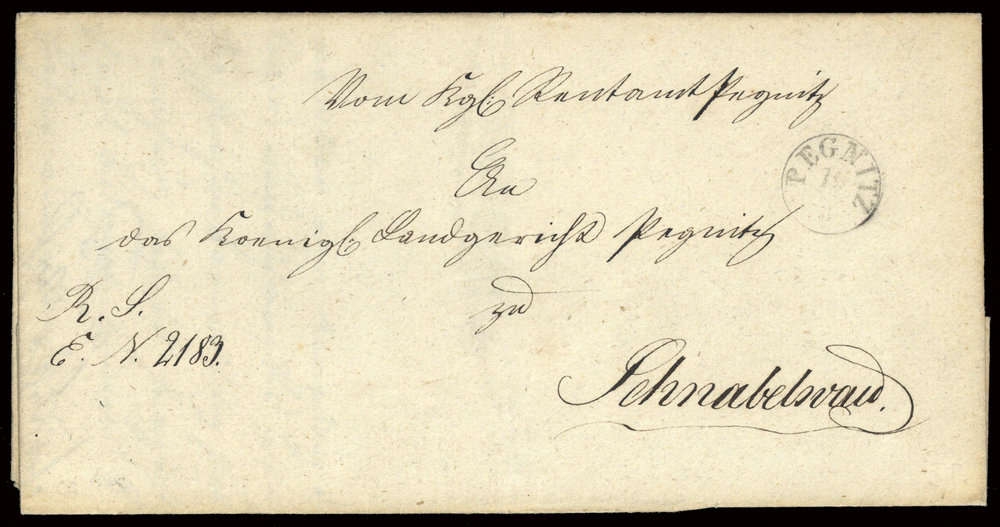 Vom Kgl: Rentamt Pegnitz
PEGNITZ
19
An
das Koenigl: Landgericht Pegnitz
R. S.
zu
E. N. 2183.
Schnabelwaid.